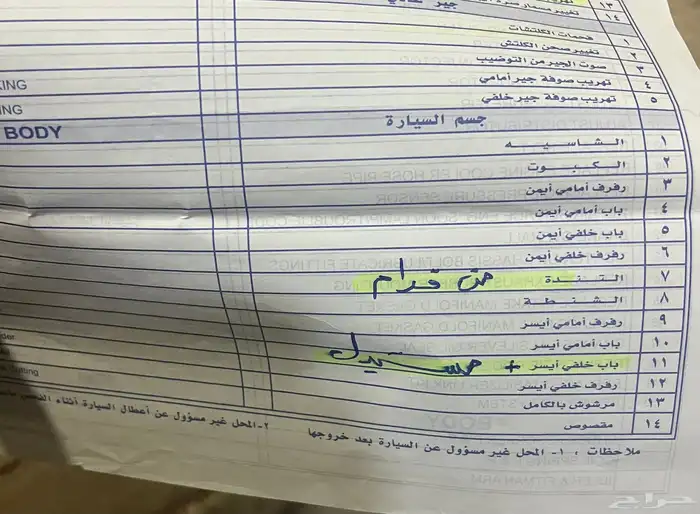 ١٣
جير
١٤ تغيير مسمار صرة
١ فحمات الكلتشات
٢ تغيير صحن الكلتش
٣ صوت الجير من التوضيب
٤ تهريب صوفة جير أمامي
٥ تهريب صوفة جير خلفي
KING
ING
جسم السيارة
BODY
١ الشاسيه
٢ الكبوت
٣ رفرف أمامي أيمن
٤ باب أمامي أيمن
٥ باب خلفي أيمن
٦ رفرف خلفي أيمن
٧ التندة من قدام
٨ الشنطة
٩ رفرف أمامي أيسر
١٠ باب أمامي أيسر
١١ باب خلفي أيسر + مستبدل
١٢ رفرف خلفي أيسر
١٣ مرشوش بالكامل
١٤ مقصوص
ملاحظات : ١- المحل غير مسؤول عن السيارة بعد خروجها ٢- المحل غير مسؤول عن أعطال السيارة أثناء الفحص
حراج